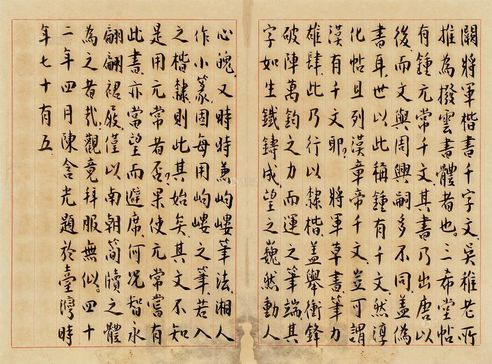 闕將軍楷書千字文。吳稚老所
推為撥雲書體者也。三希堂帖
有鍾元常千文其書乃出唐以
後而文與周興嗣多不同蓋偽
書耳世以此稱鍾有千文然淳
化帖且列漢章帝千文豈可謂
漢有千文耶。將軍草書筆力
雄肆此乃行以隸楷蓋舉衝鋒
破陣萬鈞之力而運之筆端其
字如生鐵鑄成望之巍然動人
心魄又時時兼岣嶁筆法湘人
作小篆固每用岣嶁之筆若入
之楷隸則此其始矣其文不知
是用元常者否果使元常嘗有
此書亦當望而避席何況智永
翩翩裙屐僅以南朝簡牘之體
為之者哉觀竟拜服無似四十
二年四月陳含光題於臺灣時
年七十有五